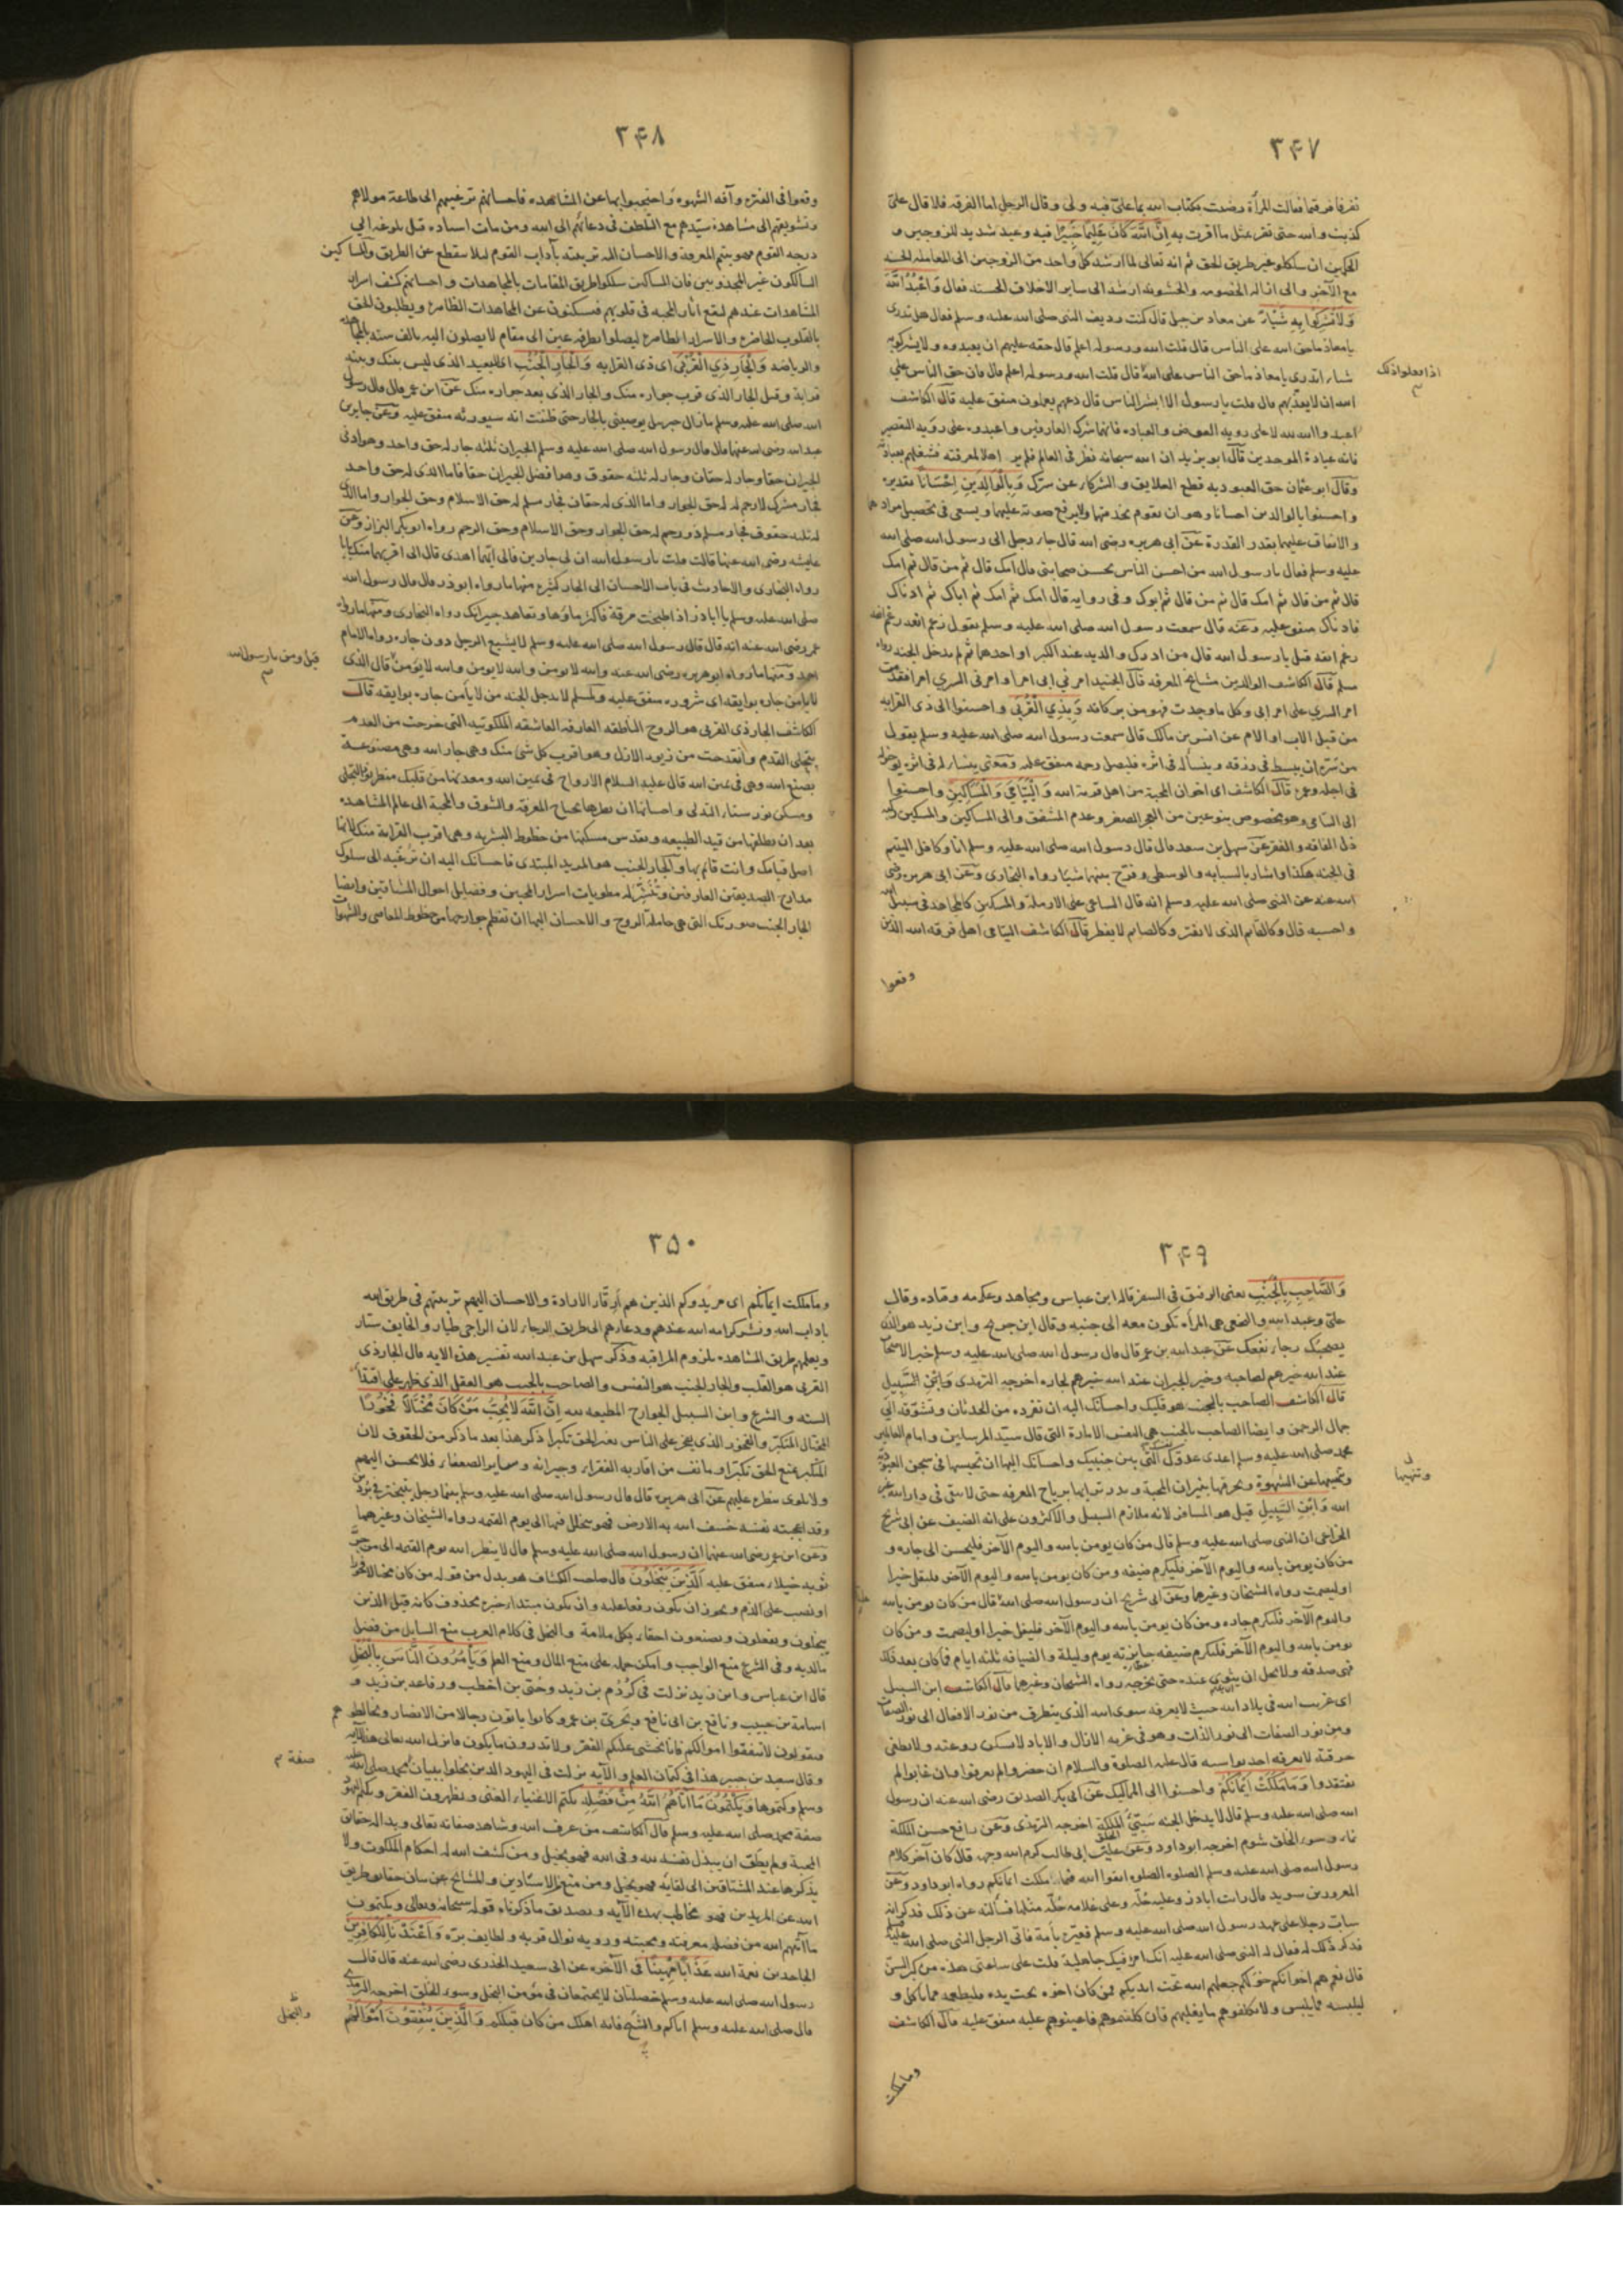 ٣۴٧
تفرقا فرقتما فقالت المرأة رضيت بكتاب الله بما علىّ فيه ولى وقال الرجل اما الفرقه فلا قال علىّ
كذبت والله حتى تقر بمثل ما اقرت به اِنَّ اللّٰهَ كَانَ عَلِيمًا خَبِيرًا فيه وعيد شديد للزوجين و
الحكمين ان سلكوا غير طريق الحق ثم انه تعالى لما ارشد كل واحد من الزوجين الى المعامله الحسنه
مع الآخر والى ازالة الخصومه والخشونه ارشد الى ساير الاخلاق الحسنه فقال وَاعْبُدُوا اللّٰهَ
وَلَا تُشْرِكُوا بِهِ شَيْئًا عن معاذ بن جبل قال كنت رديف النبى صلى الله عليه وسلم فقال هل تدرى
يا معاذ ما حق الله على الناس قال قلت الله ورسوله اعلم قال حقه عليهم ان يعبدوه ولا يشركوا به
شيئا اتدرى يا معاذ ما حق الناس على الله قال قلت الله ورسوله اعلم قال فان حق الناس على
اذا فعلوا ذلك
الله ان لا يعذبهم قال قلت يا رسول الله الا ابشر الناس قال دعهم يعملون متفق عليه قال الكاشف
اعبدوا الله لله لا على رويه العوض والعباده فانهما شرك العارفين واعبدوه على رؤية التقصير
فانه عبادة الموحدين قال ابو يزيد ان الله سبحانه نظر فى العالم فلم ير اهلا لمعرفته فشغلهم بعبادته
وقال ابو عثمان حق العبوديه قطع العلايق والشركاء عن سرّك وَبِالْوَالِدَيْنِ اِحْسَانًا تقديره
واحسنوا بالوالدين احسانا وهو ان يقوم بخدمتهما ولا يرفع صوته عليهما ويسعى فى تحصيل مرادهما
والانفاق عليهما بقدر القدرة عن ابى هريره رضى الله قال جاء رجل الى رسول الله صلى الله
عليه وسلم فقال يا رسول الله من احسن الناس بحسن صحابتى قال امك قال ثم من قال ثم امك
قال ثم من قال ثم امك قال ثم من قال ثم ابوك وفى روايه قال امك ثم امك ثم اباك ثم ادناك
فادناك متفق عليه وعنه قال سمعت رسول الله صلى الله عليه وسلم يقول رغم انفه رغم انفه
رغم انفه قيل يا رسول الله قال من ادرك والديه عند الكبر او احدهما ثم لم يدخل الجنه رواه
مسلم قال الكاشف الوالدين مشايخ المعرفه قال الجنيد امرنى ابى امرا وامرنى السرى امرا فقدّمت
امر السرى على امر ابى وكل ما وجدت فهو من بركاته وَبِذِي الْقُرْبَى واحسنوا الى ذى القرابه
من قبل الاب او الام عن انس بن مالك قال سمعت رسول الله صلى الله عليه وسلم يقول
من سرّه ان يبسط فى رزقه وينسأ له فى اثره فليصل رحمه متفق عليه ومعنى ينسأ له فى اثره يؤخر له
فى اجله وعمره قال الكاشف اى اخوان المحبة من اهل قربة الله وَالْيَتَامَى وَالْمَسَاكِينِ واحسنوا
الى اليتامى وهو مخصوص بنوعين من العجز الصغر وعدم المشفق والى المساكين والمسكين ركبه
ذل الفاقه والفقر عن سهل بن سعد قال قال رسول الله صلى الله عليه وسلم انا وكافل اليتيم
فى الجنه هكذا واشار بالسبابه والوسطى وفرّج بينهما شيئا رواه البخارى وعن ابى هريره رضى
الله عنه عن النبى صلى الله عليه وسلم انه قال الساعى على الارملة والمسكين كالمجاهد فى سبيل الله
واحسبه قال وكالقايم الذى لا يفتر وكالصايم لا يفطر قال الكاشف اليتامى اهل فرقة الله الذين
وقعوا
٣۴٨
وقعوا فى الفتره وآفه الشهوه واحتجبوا بها عن المشاهده فاحسانهم ترغيبهم الى طاعة مولاهم
وتشويقهم الى مشاهدة سيّدهم مع التلطف فى دعائهم الى الله ومن مات استاده قبل بلوغه الى
درجه القوم فهو يتيم المعرفه والاحسان اليه تربيته بآداب القوم لئلا ينقطع عن الطريق والمساكين
السالكون غير المجذوبين فان المساكين سلكوا طريق المقامات بالمجاهدات واحسانهم كشف اسرار
المشاهدات عندهم ليقع انار المحبه فى قلوبهم فيسكنون عن المجاهدات الظاهره ويطلبون الحق
بالقلوب الحاضره والاسرار الطاهره ليصلوا بطرفه عين الى مقام لا يصلون اليه بالف سنه بالمجاهده
والرياضه وَالْجَارِ ذِي الْقُرْبَى اى ذى القرابه وَالْجَارِ الْجُنُبِ اى البعيد الذى ليس بينك وبينه
قرابة وقيل الجار الذى قرب جواره منك والجار الذى بعد جواره منك عن ابن عمر قال قال رسول
الله صلى الله عليه وسلم ما زال جبريل يوصينى بالجار حتى ظننت انه سيورثه متفق عليه وعن جابر بن
عبد الله رضى الله عنهما قال قال رسول الله صلى الله عليه وسلم الجيران ثلثه جار له حق واحد وهو ادنى
الجيران حقا وجار له حقان وجار له ثلثه حقوق وهو افضل الجيران حقا فاما الذى له حق واحد
فجار مشرك لا رحم له له حق الجوار واما الذى له حقان فجار مسلم له حق الاسلام وحق الجوار واما الذى
له ثلثه حقوق فجار مسلم ذو رحم له حق الجوار وحق الاسلام وحق الرحم رواه ابو بكر البزاز وعن
عايشه رضى الله عنها قالت قلت يا رسول الله ان لى جارين فالى ايهما اهدى قال الى اقربهما منك بابا
رواه البخارى والاحاديث فى باب الاحسان الى الجار كثيره منها ما رواه ابو ذر قال قال رسول الله
صلى الله عليه وسلم يا اباذر اذا طبخت مرقة فاكثر ماءها وتعاهد جيرانك رواه البخارى ومنها ما رواه
عمر رضى الله عنه انه قال قال رسول الله صلى الله عليه وسلم لا يشبع الرجل دون جاره رواه الامام
احمد ومنها ما رواه ابو هريره رضى الله عنه والله لا يومن والله لا يومن والله لا يومن قال الذى
قيل ومن يا رسول الله
لا يأمن جاره بوايقه اى شروره متفق عليه ولمسلم لا يدخل الجنه من لا يأمن جاره بوايقه قال
الكاشف الجار ذى القربى هو الروح الناطقه العارفه العاشقه الملكوتيه التى خرجت من العدم
بتجلى القدم وانقدحت من زنود الازل وهو اقرب كل شئ منك وهى جار الله وهى مصنوعة
بصنع الله وهى فى يمين الله قال عليه السلام الارواح فى يمين الله
اصل قيامك وانت قائم بها والجار الجنب هو المريد المبتدى فاحسانك اليه ان ترغبه الى سلوك
مدارج الصديقين العارفين وتنشر له مطويات اسرار المحبين وفضايل احوال المشتاقين وايضا
الجار الجنب صورتك التى هى حاملة الروح والاحسان اليها ان تفطم جوارحها من حظوظ المعاصى والشهوات
٣۴٩
وَالصَّاحِبِ بِالْجَنْبِ يعنى الرفيق فى السفر قاله ابن عباس ومجاهد وعكرمه وقتاده وقال
علىّ وعبد الله والنخعى هى المرأه تكون معه الى جنبه وقال ابن جريج وابن زيد هو الذى
يصحبك رجاء نفعك عن عبد الله بن عمر قال قال رسول الله صلى الله عليه وسلم خير الاصحاب
عند الله خيرهم لصاحبه وخير الجيران عند الله خيرهم لجاره اخرجه الترمذى وَابْنِ السَّبِيلِ
قال الكاشف الصاحب بالجنب هو قلبك واحسانك اليه ان تفرده من الحدثان وتشوقه الى
جمال الرحمن وايضا الصاحب بالجنب هى النفس الامارة التى قال سيّد المرسلين وامام العالمين
محمد صلى الله عليه وسلم اعدى عدوّك نفسك التى بين جنبيك واحسانك اليها ان تحبسها فى سجن العبوديه
وتنهيها
وتحميها عن الشهوة وتحرقها بنيران المحبة وتذرها برياح المعرفه حتى لا يبقى فى دار الله غير
الله وَابْنِ السَّبِيلِ قيل هو المسافر لانه ملازم السبيل والاكثرون على انه الضيف عن ابى شريح
الخزاعى ان النبى صلى الله عليه وسلم قال من كان يومن بالله واليوم الآخر فليحسن الى جاره و
من كان يومن بالله واليوم الآخر فليكرم ضيفه ومن كان يومن بالله واليوم الآخر فليقل خيرا
او ليصمت رواه الشيخان وغيرهما وعن ابى شريح ان رسول الله صلى الله قال من كان يومن بالله
واليوم الآخر فليكرم جاره ومن كان يومن بالله واليوم الآخر فليقل خيرا او ليصمت ومن كان
يومن بالله واليوم الآخر فليكرم ضيفه جايزته يوم وليلة والضيافه ثلثه ايام فما كان بعد ذلك
فهى صدقه ولا يحل ان يثوى عنده حتى يحرجه رواه الشيخان وغيرهما قال الكاشف ابن السبيل
اى غريب الله فى بلاد الله حيث لا يعرفه سوى الله الذى يتطرق من نور الافعال الى نور الصفات
ومن نور الصفات الى نور الذات وهو فى غربه الآزال والآباد لا يسكن روعته ولا يطفى
حرقته لا يعرفه احد سواسه قال عليه الصلوة والسلام ان حضروا لم يعرفوا وان غابوا لم
يفتقدوا وَمَا مَلَكَتْ اَيْمَانُكُمْ واحسنوا الى المماليك عن ابى بكر الصديق رضى الله عنه ان رسول
الله صلى الله عليه وسلم قال لا يدخل الجنه سَيّئُ الْمَلَكَةِ اخرجه الترمذى وعن رافع حسن الملكة
نماء وسوء الخلق شوم اخرجه ابو داود وعن علىّ ابن ابى طالب كرم الله وجهه قال كان آخر كلام
رسول الله صلى الله عليه وسلم الصلوه الصلوه اتقوا الله فيما ملكت ايمانكم رواه ابو داود وعن
المعرور بن سويد قال رأيت اباذر وعليه حُلّة وعلى غلامه حُلّة مثلها فسألته عن ذلك فذكر انه
سابّ رجلا على عهد رسول الله صلى الله عليه وسلم فعيّره بأمه فاتى الرجل النبى صلى الله عليه وسلم
فذكر ذلك له فقال له النبى صلى الله عليه انك امرؤ فيك جاهلية قلت على ساعتى هذه من كبر السنّ
قال نعم هم اخوانكم خولكم جعلهم الله تحت ايديكم فمن كان اخوه تحت يده فليطعمه مما يأكل و
ليلبسه مما يلبس ولا تكلفوهم ما يغلبهم فان كلفتموهم فاعينوهم عليه متفق عليه قال الكاشف
وما ملكت
٣۵٠
وما ملكت ايمانكم اى مريدوكم الذين هم ارقّاء الارادة والاحسان اليهم تربيتهم فى طريق الله
باداب الله ونشر كرامه الله عندهم ودعاؤهم الى طريق الرجاء لان الراجى طيار والخايف سيّار
ويعلمهم طريق المشاهده بلزوم المراقبه وذكر سهل بن عبد الله تفسير هذه الآيه قال الجار ذى
القربى هو القلب والجار الجنب هو النفس والصاحب بالجنب هو العقل الذى ظهر على اقتداء
السنه والشرع وابن السبيل الجوارح المطيعه لله اِنَّ اللّٰهَ لَا يُحِبُّ مَنْ كَانَ مُخْتَالًا فَخُورًا
المختال المتكبّر والفخور الذى يفخر على الناس بغير الحق تكبرا ذكر هذا بعد ما ذكر من الحقوق لان
المتكبر يمنع الحق تكبّرا ويأنف من اقاربه الفقراء وجيرانه وساير الضعفاء فلا يحسن اليهم
ولا يلوى بنظره عليهم عن ابى هريره قال قال رسول الله صلى الله عليه وسلم بينما رجل يتبختر فى بردين
وقد اعجبته نفسه خسف الله به الارض فهو يتجلجل فيها الى يوم القيمه رواه الشيخان وغيرهما
وعن ابن عمر رضى الله عنهما ان رسول الله صلى الله عليه وسلم قال لا ينظر الله يوم القيمه الى من جرّ
ثوبه خيلاء متفق عليه اَلَّذِينَ يَبْخَلُونَ قال صاحب الكشاف هو بدل من قوله من كان مختالا فخورا
او نصب على الذم ويجوز ان يكون رفعا عليه وان يكون مبتداء خبره محذوف كانه قيل الذين
يبخلون ويفعلون ويصنعون احقاء بكل ملامة والبخل فى كلام العرب منع السايل من فضل
ما لديه وفى الشرع منع الواجب وامكن حمله على منع المال ومنع العلم وَيَأْمُرُونَ النَّاسَ بِالْبُخْلِ
قال ابن عباس وابن زيد نزلت فى كردم بن زيد وحيىّ بن اخطب ورفاعه بن زيد و
اسامة بن حبيب ونافع بن ابى نافع وبحرى بن عمرو وكانوا يأتون رجالا من الانصار ويخالطوهم
ويقولون لا تنفقوا اموالكم فانا نخشى عليكم الفقر ولا تدرون ما يكون فانزل الله تعالى هذه الآيه
وقال سعيد بن جبير هذا فى كتمان العلم والآيه نزلت فى اليهود الذين بخلوا ببيان محمد صلى الله عليه
صفة
وسلم وكتموها وَيَكْتُمُونَ مَا اٰتَاهُمُ اللّٰهُ مِنْ فَضْلِهِ يكتم الاغنياء الغنى ويظهرون الفقر ويكتم اليهود
صفة محمد صلى الله عليه وسلم قال الكاشف من عرف الله وشاهد صفاته تعالى وبدا له حقايق
المحبة ولم يطق ان يبذل نفسه لله وفى الله فهو بخيل ومن كشف الله له احكام الملكوت ولا
يذكرها عند المشتاقين الى لقائه فهو بخيل ومن منع من الاستادين والمشايخ عن بيان حقايق طريق
الله عن المريدين فهو مخاطب بهذه الآيه وتصديق ما ذكرناه قوله سبحانه وتعالى ويكتمون
ما آتيهم الله من فضله معرفته ومحبته ورويه نوال قربه ولطايف برّه وَاَعْتَدْنَا لِلْكَافِرِينَ
الجاحدين نعمة الله عَذَابًا مُهِينًا فى الآخره عن ابى سعيد الخدرى رضى الله عنه قال قال
رسول الله صلى الله عليه وسلم خصلتان لا يجتمعان فى مؤمن البخل وسوء الخلق اخرجه الترمذى
والبخل
قال صلى الله عليه وسلم اياكم والشح فانه اهلك من كان قبلكم وَالَّذِينَ يُنْفِقُونَ اَمْوَالَهُمْ